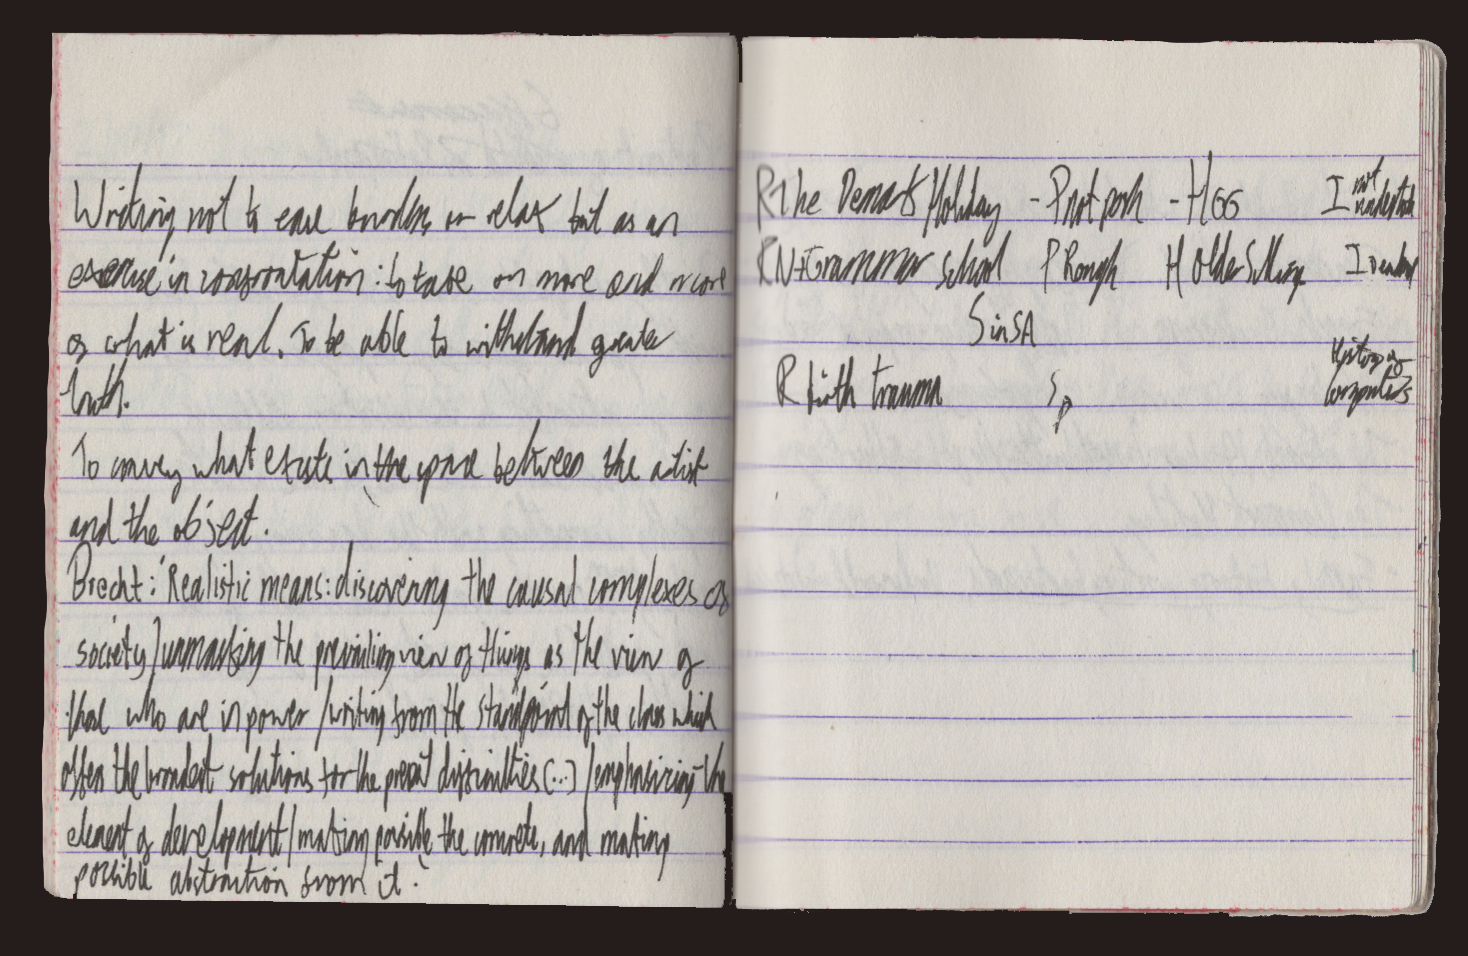 Writing not to ease burdens or relax but as an
exercise in confrontation: to take on more and more
of what is real. To be able to withstand greater
truth.
To convey what exists in the space between the artist
and the object.
Brecht: 'Realistic means: discovering the causal complexes of
society / unmasking the prevailing view of things as the view of
those who are in power / writing from the standpoint of the class which
offers the broadest solutions for the present difficulties (...) / emphasizing the
element of development / making possible the concrete, and making
possible abstraction from it.'
R The Holiday - P not posh - HGG I not
R N+Grammar school P Rough H Older I
S in SA
R birth trauma S History of
P computers